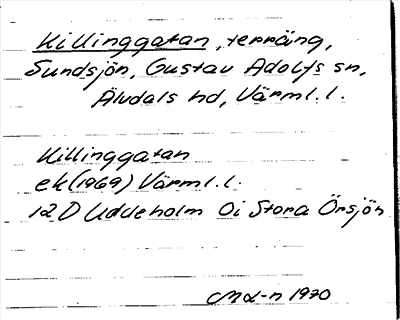 Killinggatan, terräng,
Sundsjön, Gustav Adolfs sn,
Älvdals hd, Värml. l.
Killinggatan
ek (1969) Värml. l.
12 D Uddeholm 0i Stora Örsjön
1970